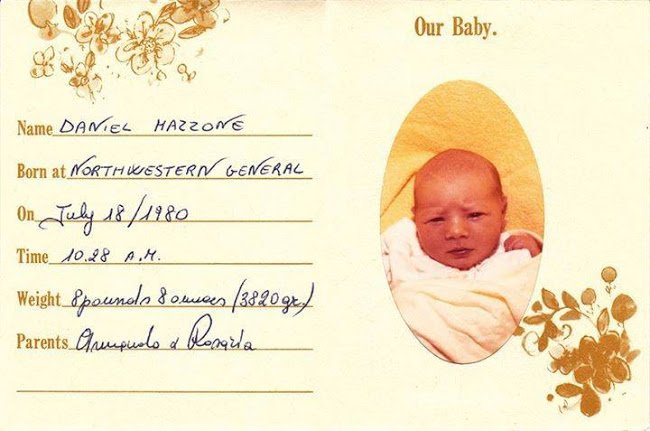 Our Baby.
Name DANIEL MAZZONE
Born at NORTHWESTERN GENERAL
On July 18/1980
Time 10.28 A.M.
Weight 8 pounds 8 ounces (3820 gr.)
Parents Armando & Rosaria